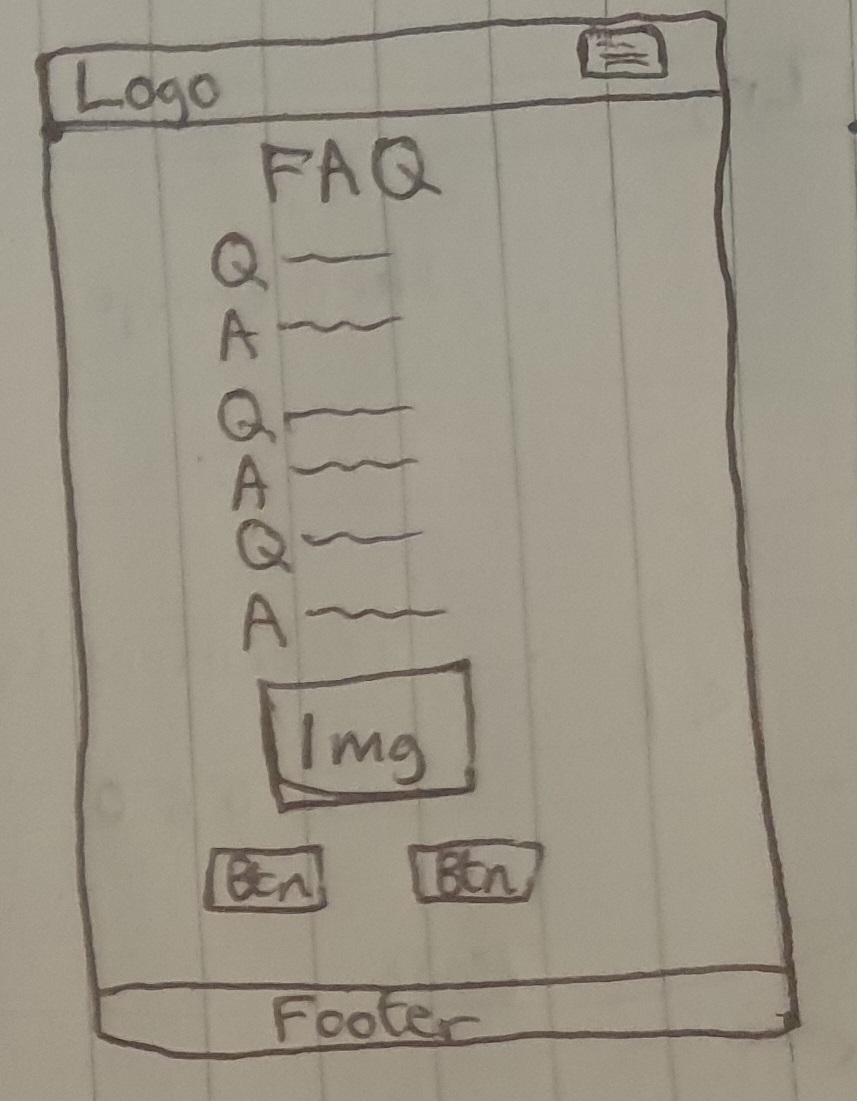 Logo
FAQ
Q
A
Q
A
Q
A
Img
Btn Btn
Footer